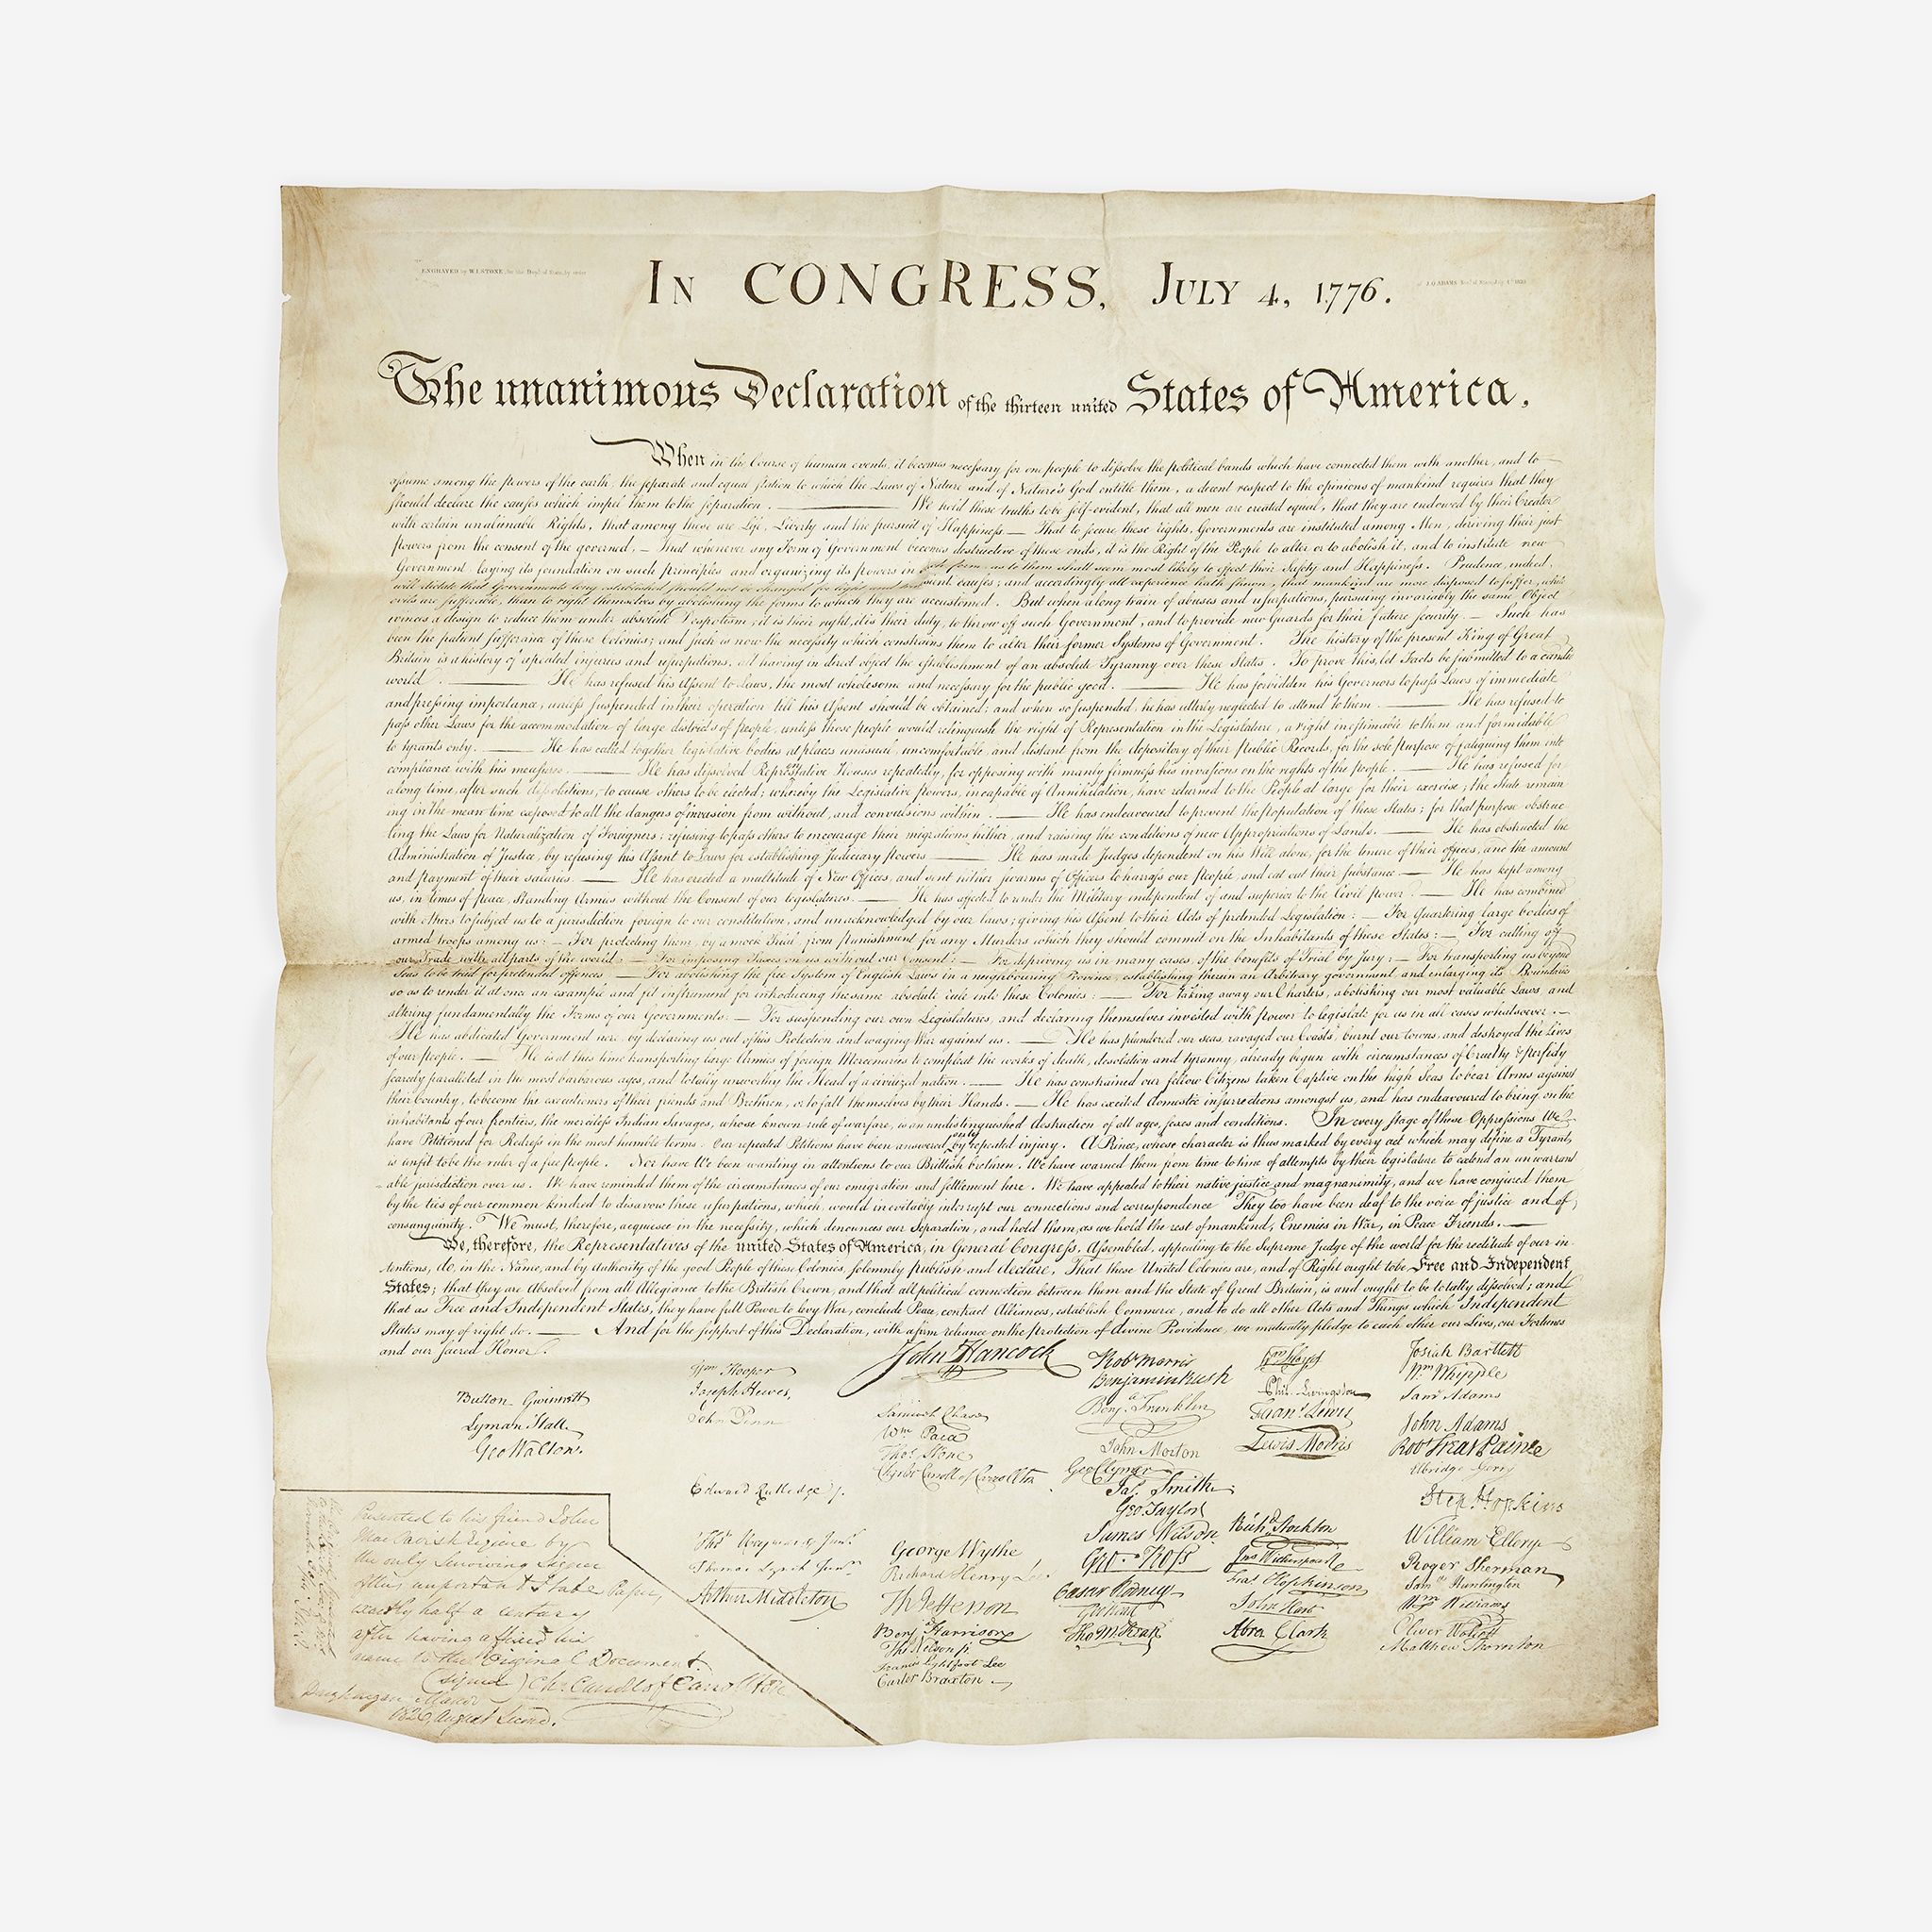 ENGRAVED by W.I.STONE for the Dept. of State, by order
In CONGRESS, July 4, 1776.
The unanimous Declaration of the thirteen united States of America,
When in the Course of human events, it becomes necessary for one people to dissolve the political bands which have connected them with another, and to
assume among the powers of the earth, the separate and equal station to which the Laws of Nature and of Nature's God entitle them, a decent respect to the opinions of mankind requires that they
should declare the causes which impel them to the separation. — We hold these truths to be self-evident, that all men are created equal, that they are endowed by their Creator
with certain unalienable Rights, that among these are Life, Liberty and the pursuit of Happiness. — That to secure these rights, Governments are instituted among Men, deriving their just
powers from the consent of the governed, — That whenever any Form of Government becomes destructive of these ends, it is the Right of the People to alter or to abolish it, and to institute new
Government, laying its foundation on such principles and organizing its powers in such form, as to them shall seem most likely to effect their Safety and Happiness. Prudence, indeed,
will dictate that Governments long established should not be changed for light and transient causes; and accordingly all experience hath shewn, that mankind are more disposed to suffer, while
evils are sufferable, than to right themselves by abolishing the forms to which they are accustomed. But when a long train of abuses and usurpations, pursuing invariably the same Object
evinces a design to reduce them under absolute Despotism, it is their right, it is their duty, to throw off such Government, and to provide new Guards for their future security. — Such has
been the patient sufferance of these Colonies; and such is now the necessity which constrains them to alter their former Systems of Government. The history of the present King of Great
Britain is a history of repeated injuries and usurpations, all having in direct object the establishment of an absolute Tyranny over these States. To prove this, let Facts be submitted to a candid
world. — He has refused his Assent to Laws, the most wholesome and necessary for the public good. — He has forbidden his Governors to pass Laws of immediate
and pressing importance, unless suspended in their operation till his Assent should be obtained; and when so suspended, he has utterly neglected to attend to them. — He has refused to
pass other Laws for the accommodation of large districts of people, unless those people would relinquish the right of Representation in the Legislature, a right inestimable to them and formidable
to tyrants only. — He has called together legislative bodies at places unusual, uncomfortable, and distant from the depository of their Public Records, for the sole purpose of fatiguing them into
compliance with his measures. — He has dissolved Representative Houses repeatedly, for opposing with manly firmness his invasions on the rights of the people. — He has refused for
a long time, after such dissolutions, to cause others to be elected; whereby the Legislative powers, incapable of Annihilation, have returned to the People at large for their exercise; the State remain
ing in the mean time exposed to all the dangers of invasion from without, and convulsions within. — He has endeavoured to prevent the population of these States; for that purpose obstruc
ting the Laws for Naturalization of Foreigners; refusing to pass others to encourage their migrations hither, and raising the conditions of new Appropriations of Lands. — He has obstructed the
Administration of Justice, by refusing his Assent to Laws for establishing Judiciary powers — He has made Judges dependent on his Will alone, for the tenure of their offices, and the amount
and payment of their salaries. — He has erected a multitude of New Offices, and sent hither swarms of Officers to harrass our people, and eat out their substance. — He has kept among
us, in times of peace, Standing Armies without the Consent of our legislatures. — He has affected to render the Military independent of and superior to the Civil power. — He has combined
with others to subject us to a jurisdiction foreign to our constitution, and unacknowledged by our laws; giving his Assent to their Acts of pretended Legislation: — For Quartering large bodies of
armed troops among us: — For protecting them, by a mock Trial, from punishment for any Murders which they should commit on the Inhabitants of these States: — For cutting off
our Trade with all parts of the world: — For imposing Taxes on us without our Consent: — For depriving us in many cases, of the benefits of Trial by Jury: — For transporting us beyond
Seas to be tried for pretended offences — For abolishing the free System of English Laws in a neighbouring Province, establishing therein an Arbitrary government, and enlarging its Boundaries
so as to render it at once an example and fit instrument for introducing the same absolute rule into these Colonies: — For taking away our Charters, abolishing our most valuable Laws, and
altering fundamentally the Forms of our Governments: — For suspending our own Legislatures, and declaring themselves invested with power to legislate for us in all cases whatsoever. —
He has abdicated Government here, by declaring us out of his Protection and waging War against us. — He has plundered our seas, ravaged our Coasts, burnt our towns, and destroyed the lives
of our people. — He is at this time transporting large Armies of foreign Mercenaries to compleat the works of death, desolation and tyranny, already begun with circumstances of Cruelty & perfidy
scarcely paralleled in the most barbarous ages, and totally unworthy the Head of a civilized nation. — He has constrained our fellow Citizens taken Captive on the high Seas to bear Arms against
their Country, to become the executioners of their friends and Brethren, or to fall themselves by their Hands. — He has excited domestic insurrections amongst us, and has endeavoured to bring on the
inhabitants of our frontiers, the merciless Indian Savages, whose known rule of warfare, is an undistinguished destruction of all ages, sexes and conditions. In every stage of these Oppressions We
have Petitioned for Redress in the most humble terms: Our repeated Petitions have been answered only by repeated injury. A Prince, whose character is thus marked by every act which may define a Tyrant,
is unfit to be the ruler of a free people. Nor have We been wanting in attentions to our Brittish brethren. We have warned them from time to time of attempts by their legislature to extend an unwarrant
able jurisdiction over us. We have reminded them of the circumstances of our emigration and settlement here. We have appealed to their native justice and magnanimity, and we have conjured them
by the ties of our common kindred to disavow these usurpations, which, would inevitably interrupt our connections and correspondence They too have been deaf to the voice of justice and of
consanguinity. We must, therefore, acquiesce in the necessity, which denounces our Separation, and hold them, as we hold the rest of mankind, Enemies in War, in Peace Friends. —
We, therefore, the Representatives of the united States of America, in General Congress, Assembled, appealing to the Supreme Judge of the world for the rectitude of our in-
tentions, do, in the Name, and by Authority of the good People of these Colonies, solemnly publish and declare, That these United Colonies are, and of Right ought to be Free and Independent
States; that they are Absolved from all Allegiance to the British Crown, and that all political connection between them and the State of Great Britain, is and ought to be totally dissolved; and
that as Free and Independent States, they have full Power to levy War, conclude Peace, contract Alliances, establish Commerce, and to do all other Acts and Things which Independent
States may of right do. — And for the support of this Declaration, with a firm reliance on the protection of divine Providence, we mutually pledge to each other our Lives, our Fortunes
and our sacred Honor.
Button Gwinnett
Lyman Hall
Geo Walton.
Wm Hooper
Joseph Hewes,
John Penn
Edward Rutledge /.
Thos Heyward Junr.
Thomas Lynch Junr.
Arthur Middleton
John Hancock
Samuel Chase
Wm Paca
Thos. Stone
Charles Carroll of Carrollton
George Wythe
Richard Henry Lee.
Th Jefferson
Benj Harrison
Thos Nelson jr.
Francis Lightfoot Lee
Carter Braxton
Robt Morris
Benjamin Rush
Benj. Franklin
John Morton
Geo Clymer
Jas. Smith.
Geo. Taylor
James Wilson
Geo. Ross
Caesar Rodney
Geo Read
Tho M:Kean
Wm Floyd
Phil. Livingston
Frans. Lewis
Lewis Morris
Richd. Stockton
Jno Witherspoon
Fras. Hopkinson
John Hart
Abra Clark
Josiah Bartlett
Wm. Whipple
Saml Adams
John Adams
Robt Treat Paine
Elbridge Gerry
Step. Hopkins
William Ellery
Roger Sherman
Saml. Huntington
Wm. Williams
Oliver Wolcott
Matthew Thornton
Presented to his friend John
MacTavish Esquire by
the only surviving signer
of this important State Paper,
exactly half a century
after having affixed his
name to the Original Document.
(signed) Ch. Carroll of Carrollton
Doughoregan Manor
1826, August Second.